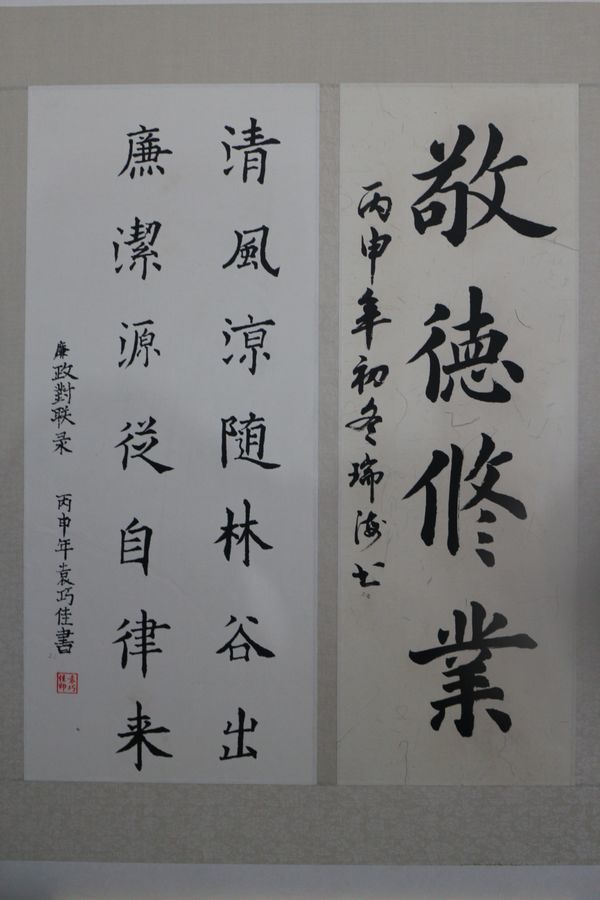 敬德修業
丙申年初冬瑞海书
清風涼随林谷出
廉潔源從自律来
廉政對联录 丙申年袁巧佳書